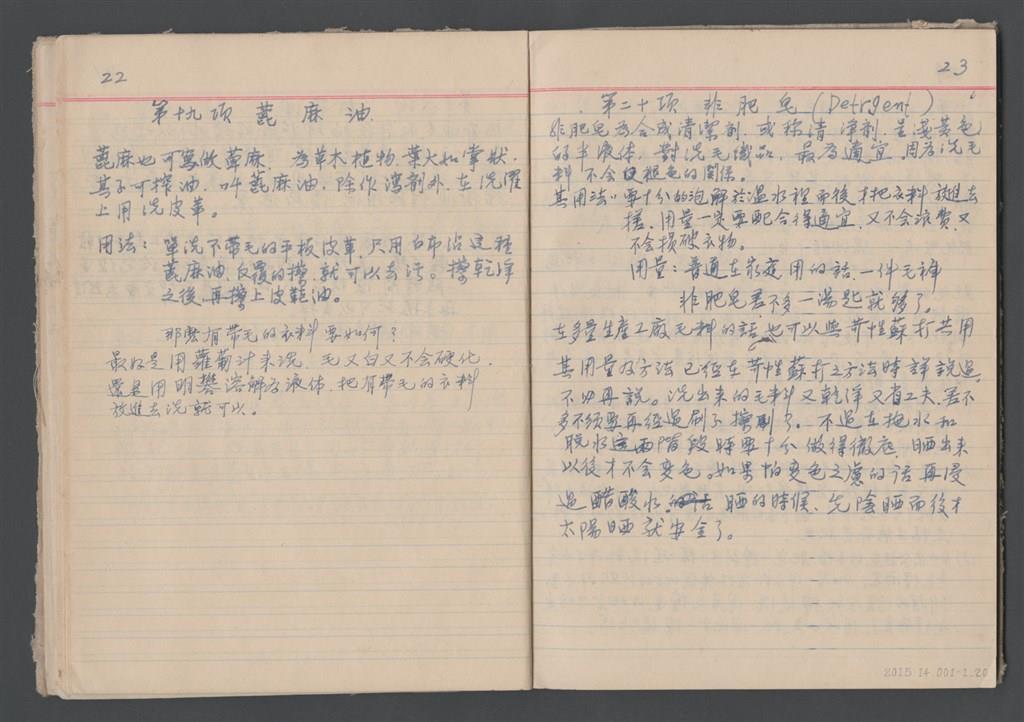 22
第十九項 蓖麻油.
蓖麻也可寫做萆麻. 為草木植物.葉大如掌狀.
其子可榨油.叫蓖麻油.除作瀉劑外.在洗濯
上用洗皮革。
用法：單洗不帶毛的平板皮革.只用白布沾這種
蓖麻油.反覆的擦.就可以去污。擦乾淨
之後.再擦上皮鞋油。
那麼有带毛的衣料要如何？
最好是用蘿蔔汁来洗.毛又白又不会硬化.
還是用明礬溶解為液体.把有带毛的衣料
放進去洗就可以。
23
第二十項 非肥皂(Detrgent)
非肥皂為合成清潔剤.或称清淨剤.呈淡黄色
的半液体.對洗毛織品.最為適宜.因為洗毛
料不会有褪色的関係。
其用法：要十分的泡解於温水裡而後才把衣料放進去
搓.用量一定要配合得適宜.又不会浪費.又
不会損破衣物。
用量：普通在家庭用的話.一件毛褲
非肥皂差不多一湯匙就够了。
在多量生産工廠毛料的話.也可以與苛性蘇打共用
其用量及方法已經在苛性蘇打之方法時詳說過.
不必再說。洗出来的毛料又乾淨又省工夫.差不
多不須要再經過刷子擦刷了。不過在掩水和
脱水這両階段時要十分做得徹底.晒出来
以後才不会変色。如果怕変色之慮的話再浸
過醋酸水.晒的時候.先陰晒而後才
太陽晒就安全了。
2015.14.001-1.20